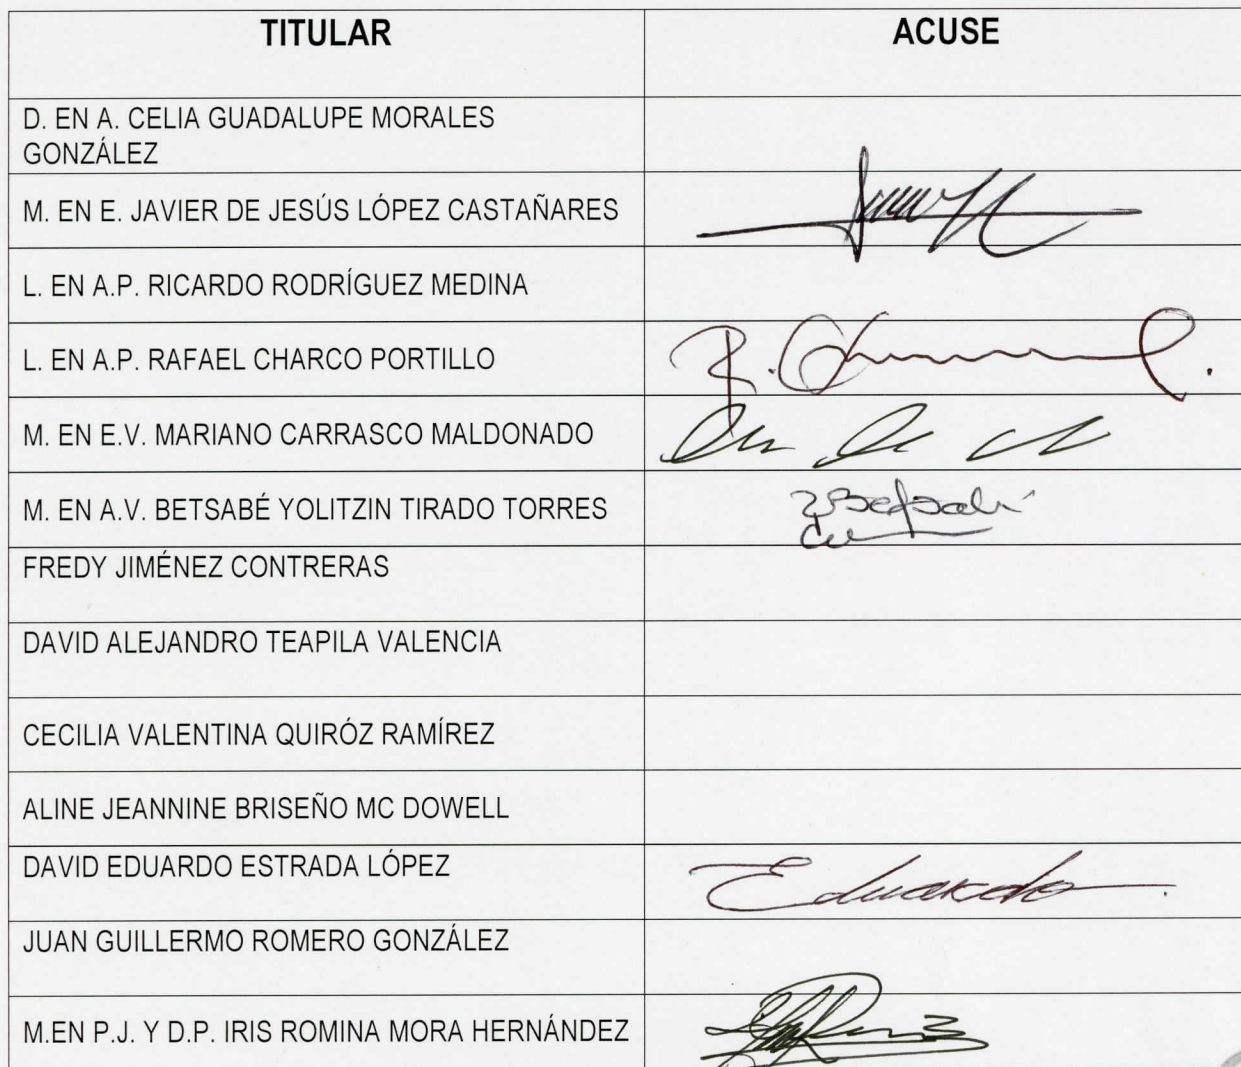 TITULAR
ACUSE
D. EN A. CELIA GUADALUPE MORALES
GONZÁLEZ
M. EN E. JAVIER DE JESÚS LÓPEZ CASTAÑARES
L. EN A.P. RICARDO RODRÍGUEZ MEDINA
L. EN A.P. RAFAEL CHARCO PORTILLO
M. EN E.V. MARIANO CARRASCO MALDONADO
M. EN A.V. BETSABÉ YOLITZIN TIRADO TORRES
FREDY JIMÉNEZ CONTRERAS
DAVID ALEJANDRO TEAPILA VALENCIA
CECILIA VALENTINA QUIRÓZ RAMÍREZ
ALINE JEANNINE BRISEÑO MC DOWELL
DAVID EDUARDO ESTRADA LÓPEZ
Eduardo
JUAN GUILLERMO ROMERO GONZÁLEZ
M.EN P.J. Y D.P. IRIS ROMINA MORA HERNÁNDEZ